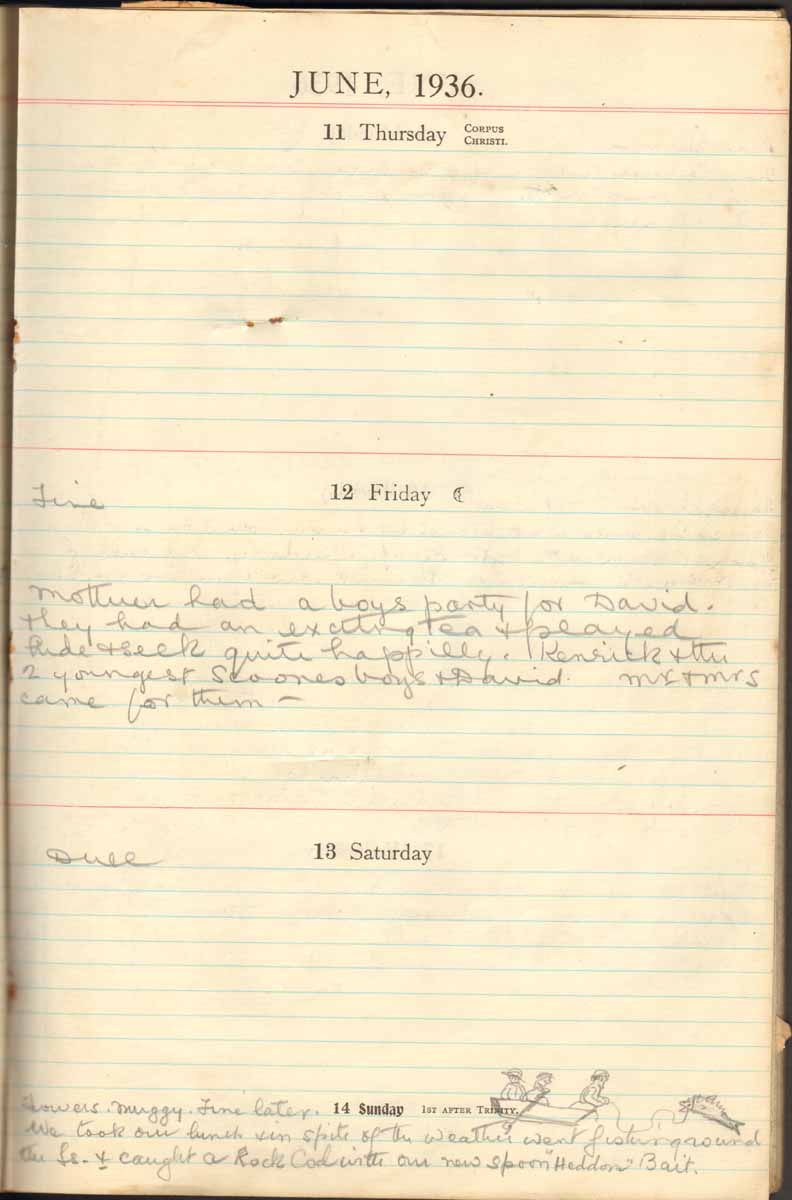 JUNE, 1936.
11 Thursday CORPUS CHRISTI.
Fine 12 Friday
Mother had a boys party for David.
They had an exciting tea & played
hide & seek quite happilly. Kenrick & the
2 youngest Scoones boys & David. Mr & Mrs
came for them –
Dull 13 Saturday
Showers. Muggy. Fine later. 14 Sunday 1ST AFTER TRINITY.
We took our lunch & in spite of the weather went fishin' ground
the Is. & caught a Rock Cod with our new spoon "Heddon" Bait.